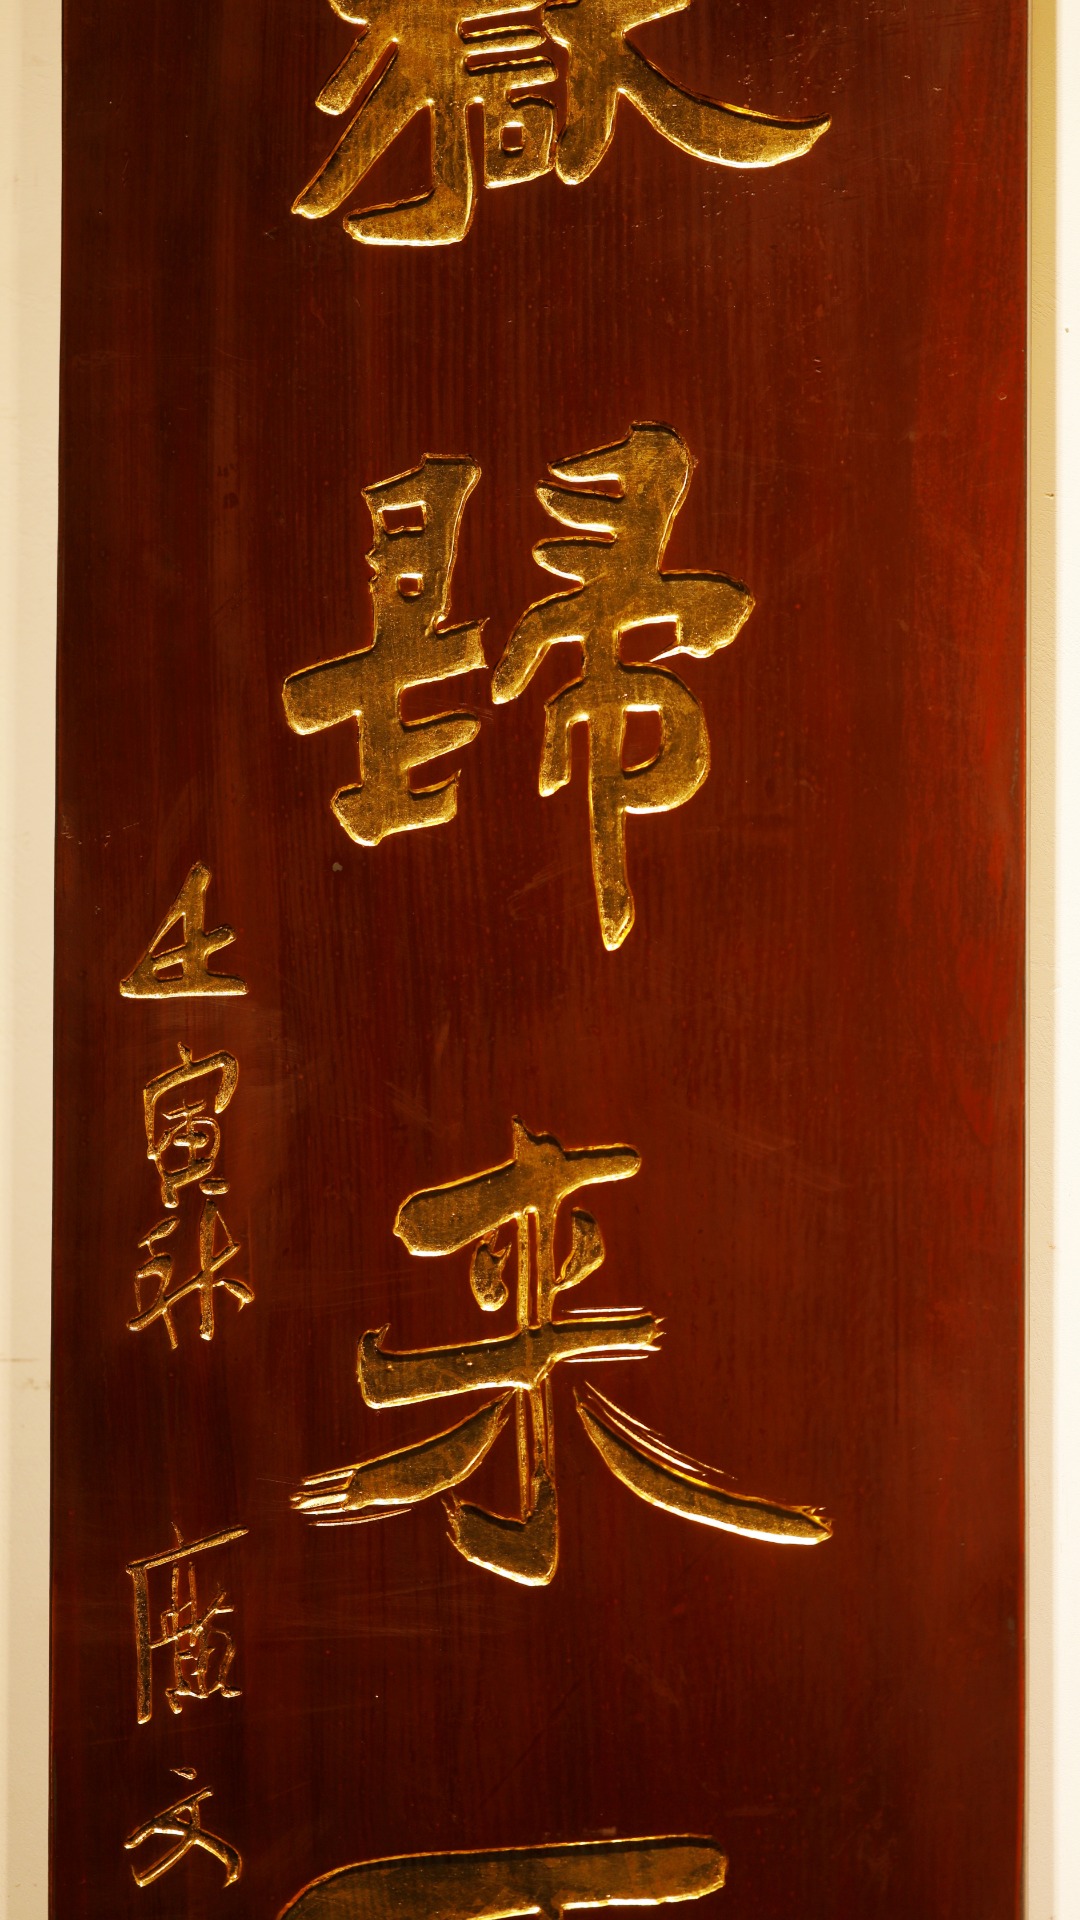 嶽歸来
壬寅秋 廣文